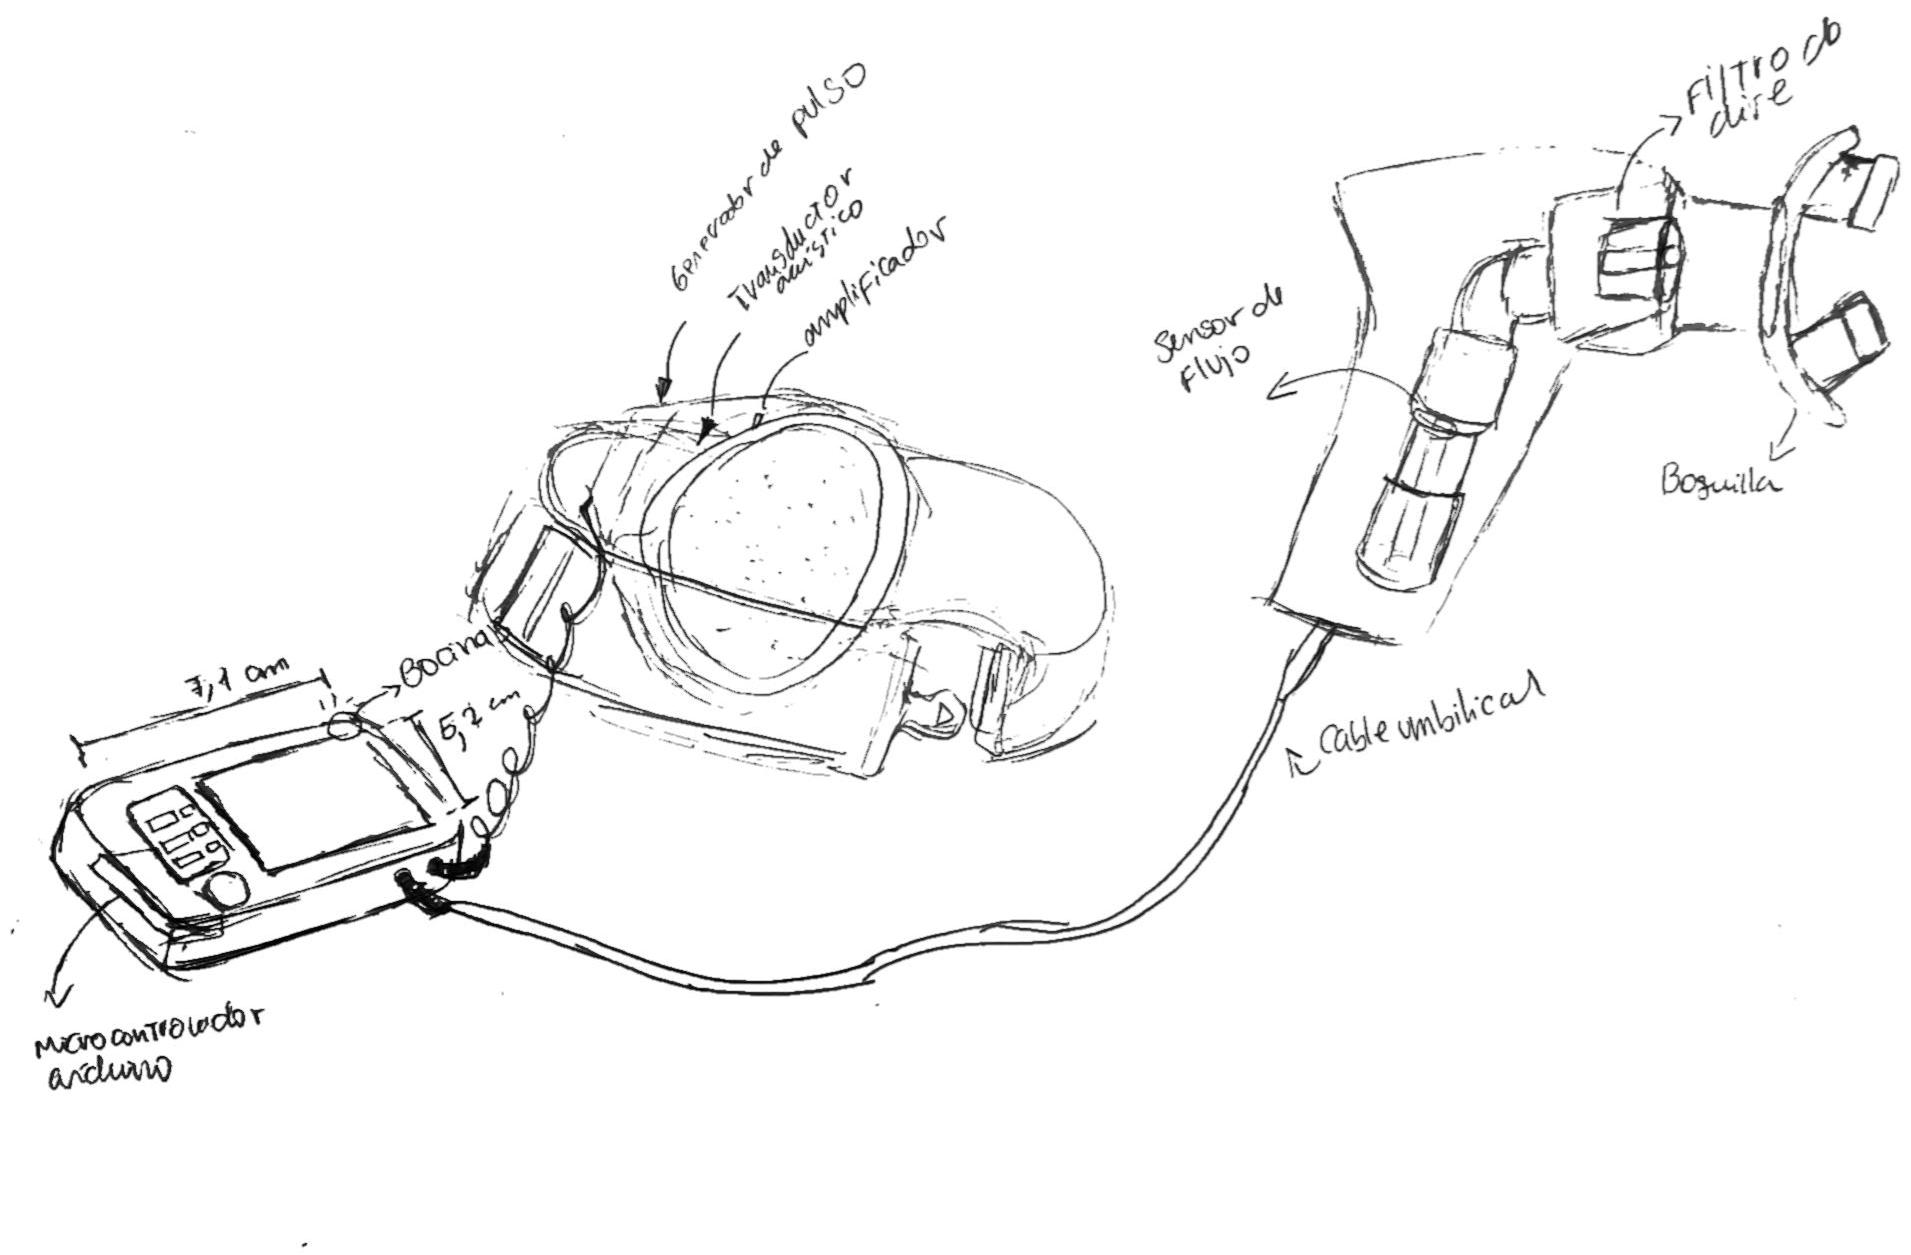 Generador de pulso
Transductor
acústico
amplificador
Filtro de
aire
Sensor de
Flujo
Boquilla
Bocina
7,1 cm
5,7 cm
Cable umbilical
Microcontrolador
arduino